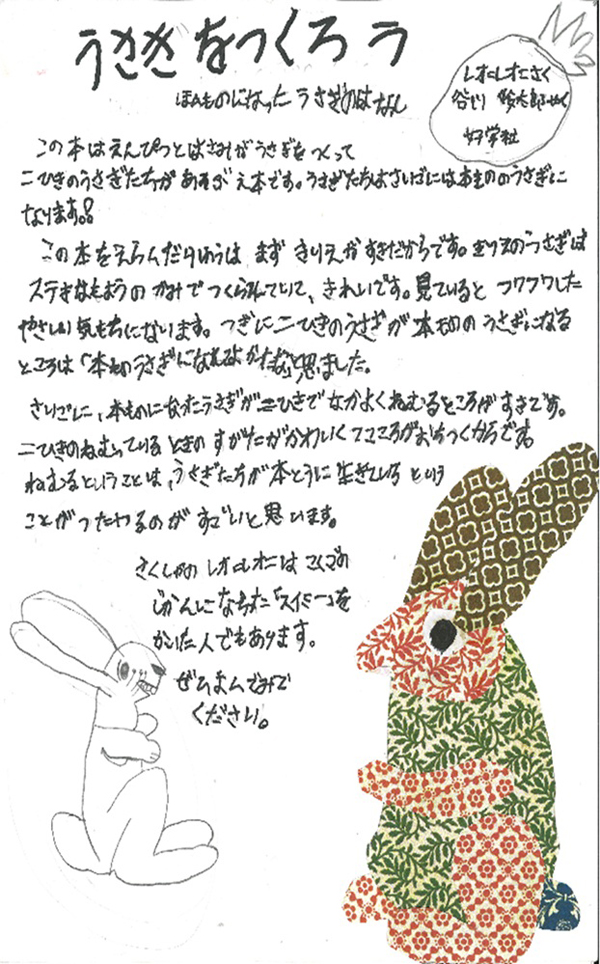 うさぎをつくろう
ほんものになったうさぎのはなし
レオ=レオニさく
谷川 俊太郎やく
好学社
この本はえんぴつとはさみがうさぎをつくって
二ひきのうさぎたちがあそぶえ本です。うさぎたちはさいごには本もののうさぎに
なります。
この本をえらんだりゆうは まず きりえがすきだからです。きりえのうさぎは
ステキなもようの かみでつくられていて、きれいです。見ているとフワフワした
やさしい気もちになります。つぎに二ひきのうさぎが本もののうさぎになる
ところは「本もののうさぎになれてよかったね」と思いました。
さいごに、本ものになったうさぎが二ひきでなかよくねむるところがすきです。
二ひきのねむっているときの すがたがかわいくてこころがおちつくからです。
ねむるということは、うさぎたちが本とうに生きている という
ことがつたわるのがすごいと思います。
さくしゃの レオ=レオニは こくごの
じかんにならった「スイミー」を
かいた人でもあります。
ぜひよんでみて
ください。